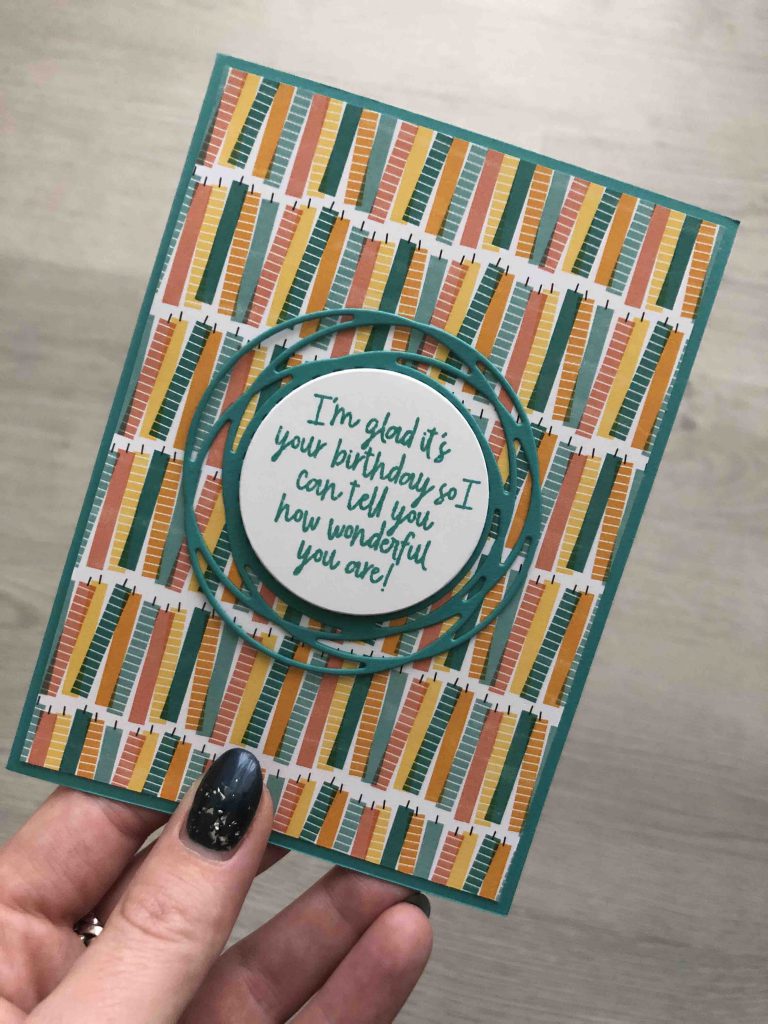 I'm glad it's
your birthday so I
can tell you
how wonderful
you are!